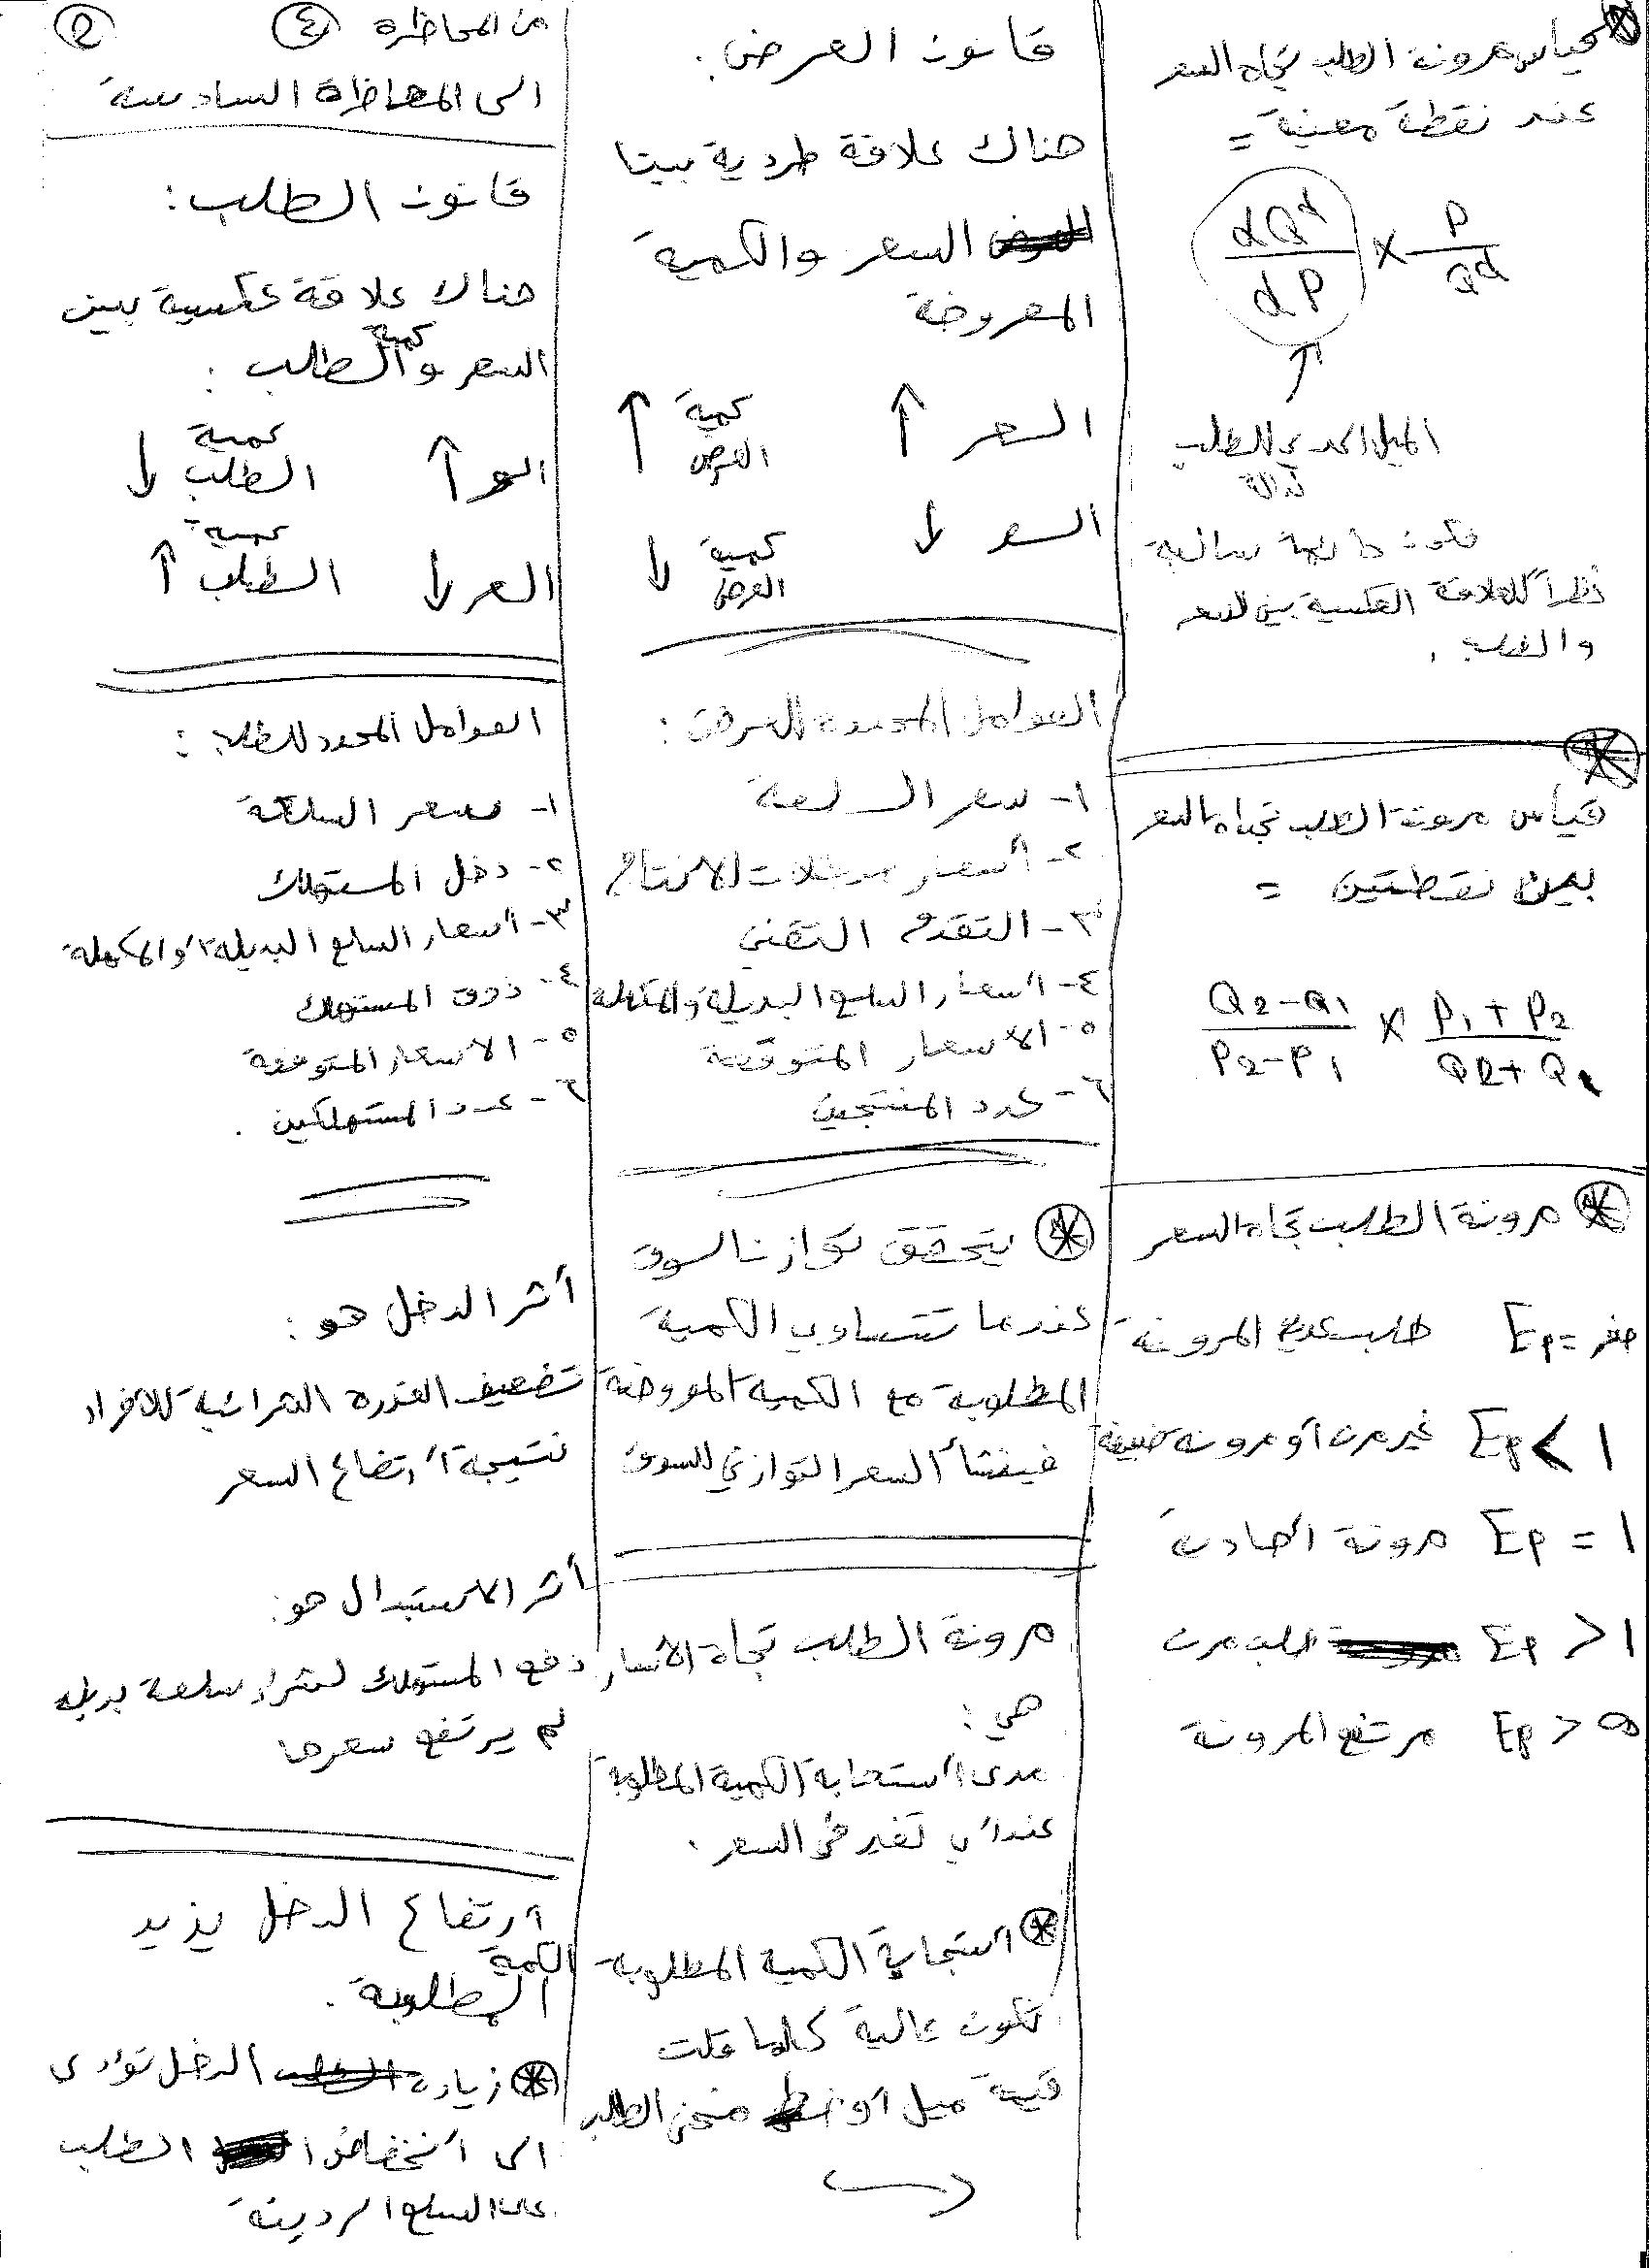 من المحاظرة ٤ 2
الى المحاظرة السادسة
قانون الطلب:
هناك علاقة عكسية بين
السعر وكمية الطلب:
السعر ↑ كمية الطلب ↓
السعر ↓ كمية الطلب ↑
العوامل المحدد للطلب:
١- سعر السلعة
٢- دخل المستهلك
٣- أسعار السلع البديلة أو المكملة
٤- ذوق المستهلك
٥- الاسعار المتوقعة
٦- عدد المستهلكين.
أثر الدخل هو:
تضعيف القدرة الشرائية للافراد
نتيجة أرتفاع السعر
أثر الاستبدال هو:
دفع المستهلك لشراء سلعة بديله
لم يرتفع سعرها
أرتفاع الدخل يزيد
الكمية
المطلوبة.
زيادة الدخل تؤدي
الى أنخفاض الطلب
على السلع الرديئة
قانون العرض:
هناك علاقة طردية بين
السعر والكمية
المعروضة
السعر ↑ كمية العرض ↑
السعر ↓ كمية العرض ↓
العوامل المحددة للعرض:
١- سعر السلعة
٢- أسعار مدخلات الانتاج
٣- التقدم التقني
٤- أسعار السلع البديلة والمكملة
٥- الاسعار المتوقعة
٦- عدد المنتجين
يتحقق توازن السوق
عندما تتساوى الكمية
المطلوبة مع الكمية المعروضة
فينشأ السعر التوازني للسوق
مرونة الطلب تجاه الأسعار
هي:
مدى أستجابة الكمية المطلوبة
عند أي تغير في السعر.
أستجابة الكمية المطلوبة
تكون عالية كلما قلت
قيمة ميل أو خط منحنى الطلب
قياس مرونة الطلب تجاه السعر
عند نقطة معينة =
dQd/dP × P/Qd
الميل الحدي لدالة الطلب
تكون دائما سالبة
نظراً للعلاقة العكسية بين السعر
والطلب.
قياس مرونة الطلب تجاه السعر
بين نقطتين =
Q2-Q1/P2-P1 × P1+P2/Q2+Q1
مرونة الطلب تجاه السعر
Ep = صفر طلب عديم المرونة
Ep < 1 غير مرن أو مرونه ضعيفة
Ep = 1 مرونة أحادية
Ep > 1 طلب مرن
Ep > ∞ مرتفع المرونة